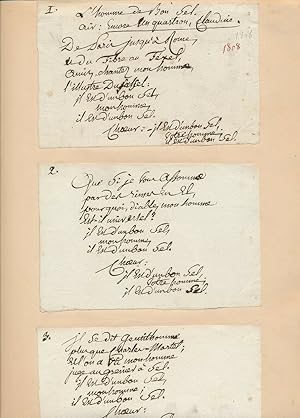 1. L'homme de Bon Sel.
Air: encore un quartron, Claudine.
De Paris jusqu'à Rome,
et du Tibre au Texel,
Amis, chantez mon homme
l'illustre
1808
il est d'un bon Sel,
mon homme,
il est d'un bon Sel.
Chœur: il est d'un bon Sel,
votre homme,
il est d'un bon Sel.
2.
Que si je vous assomme
par des rimes en El,
pourquoi, diable, mon homme
Est-il universel?
il est d'un bon Sel,
mon homme,
il est d'un bon Sel.
Chœur:
il est d'un bon Sel,
votre homme,
il est d'un bon Sel.
3.
il se dit Gentilhomme
plus que Charles-Martel;
et l'on a fait mon homme
juge au grenier à Sel.
il est d'un bon Sel,
mon homme,
il est d'un bon Sel.
Chœur: